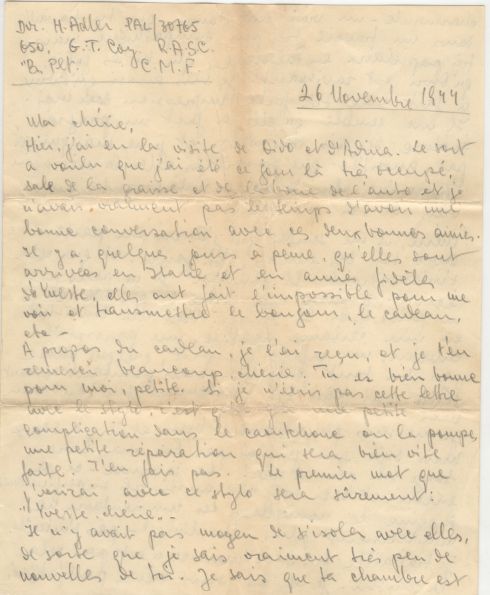 Dvr. H. Adler PAL/30765
650, G. T. Coy R.A.S.C.
"B" Plt. C.M.F.
26 Novembre 1944
Ma chérie,
Hier, j'ai eu la visite de Dido et d'Adina. Le sort
a voulu que j'ai été ce jour là très occupé,
sale de la graisse et de l'auto et je
n'avais vraiment pas le temps d'avoir une
bonne conversation avec ces deux bonnes amies.
Il y a, quelques jours à peine, qu'elles sont
arrivées en Italie et en amies fidèles
d'Yvette, elles ont fait l'impossible pour me
voir et transmettre le bonjour, le cadeau,
etc -
A propos du cadeau, je l'ai reçu, et je t'en
remercie beaucoup, chérie. Tu es bien bonne
pour moi, petite. Si je n'écris pas cette lettre
avec le stylo, c'est qu'il y a une petite
complication dans le caoutchouc ou la pompe,
une petite réparation qui sera bien vite
faite. T'en fais pas. Le premier mot que
j'écrirai avec ce stylo sera sûrement:
"Yvette chérie"..
Il n'y avait pas moyen de s'isoler avec elles,
de sorte que je sais vraiment très peu de
nouvelles de toi. Je sais que ta chambre est